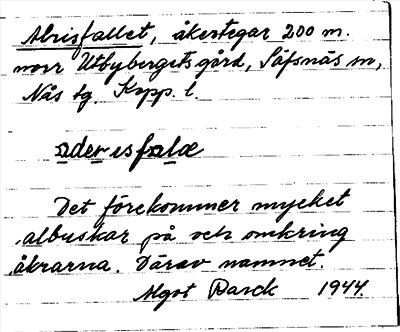 Alrisfallet, åkertegar 200 m.
norr Utbybergets gård, Säfsnäs sn,
Nås tg. Kopp. l.
Det förekommer mycket
albuskar på och omkring
åkrarna. Därav namnet.
Algot 1944.